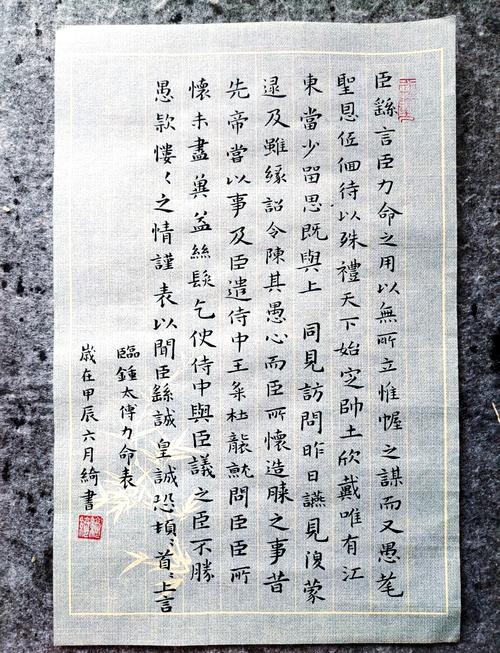 臣繇言臣力命之用以無所立惟幄之謀而又愚耄
聖恩低佪待以殊禮天下始定帥土欣戴唯有江
東當少留思既與上同見訪問昨日讌見復蒙
逮及雖緣詔令陳其愚心而臣所懷造膝之事昔
先帝當以事及臣遣侍中王粲杜襲就問臣臣所
懷未盡冀益絲髮乞使侍中與臣議之臣不勝
愚款慺〻之情謹表以聞臣繇誠皇誠恐頓〻首〻上言
臨鍾太傅力命表
歲在甲辰六月綺書